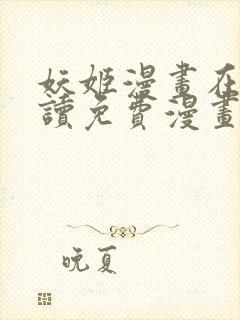 妖姬漫畫在
讀免費漫畫
晚夏